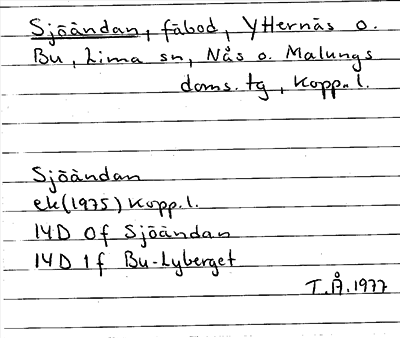 Sjöändan, fäbod, Ytternäs o.
Bu, Lima sn, Nås o. Malungs
doms. tg, Kopp. l.
Sjöändan
ek (1975) Kopp. l.
14D 0f Sjöändan
14D 1f Bu-Lyberget
T.Å. 1977